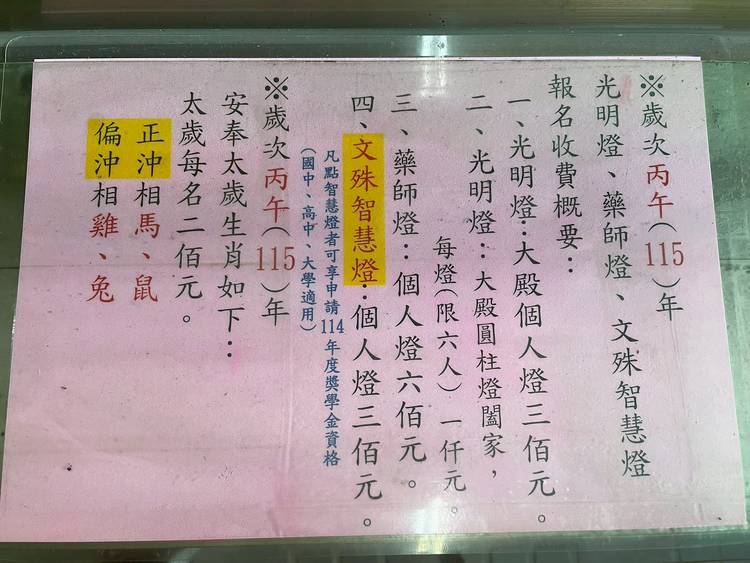 ※歲次丙午(115)年
光明燈、藥師燈、文殊智慧燈
報名收費概要：
一、光明燈：大殿個人燈三佰元。
二、光明燈：大殿圓柱燈闔家，
每燈(限六人) 一仟元。
三、藥師燈：個人燈六佰元。
四、文殊智慧燈：個人燈三佰元。
凡點智慧燈者可享申請114年度獎學金資格
(國中、高中、大學適用)
※歲次丙午(115)年
安奉太歲生肖如下：
太歲每名二佰元。
正沖相馬、鼠
偏沖相雞、兔